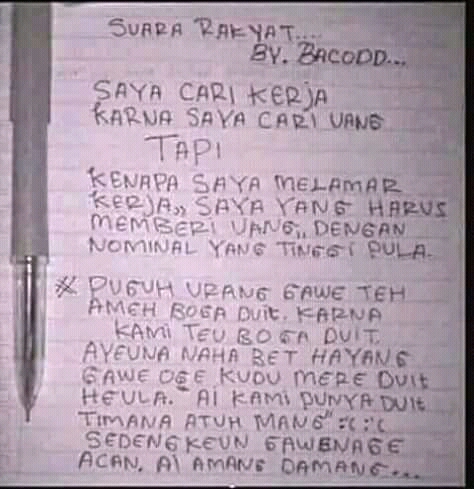 SUARA RAKYAT....
BY. BACODD...
SAYA CARI KERJA
KARNA SAYA CARI UANG
TAPI
KENAPA SAYA MELAMAR
KERJA,, SAYA YANG HARUS
MEMBERI UANG,, DENGAN
NOMINAL YANG TINGGI PULA.
* PUGUH URANG GAWE TEH
AMEH BOGA DUIT. KARNA
KAMI TEU BOGA DUIT.
AYEUNA NAHA BET HAYANG
GAWE OGE KUDU MERE DUIT
HEULA. "AI KAMI PUNYA DUIT
TIMANA ATUH MANG" :( :(
SEDENGKEUN GAWENAGE
ACAN. AI AMANG DAMANG...